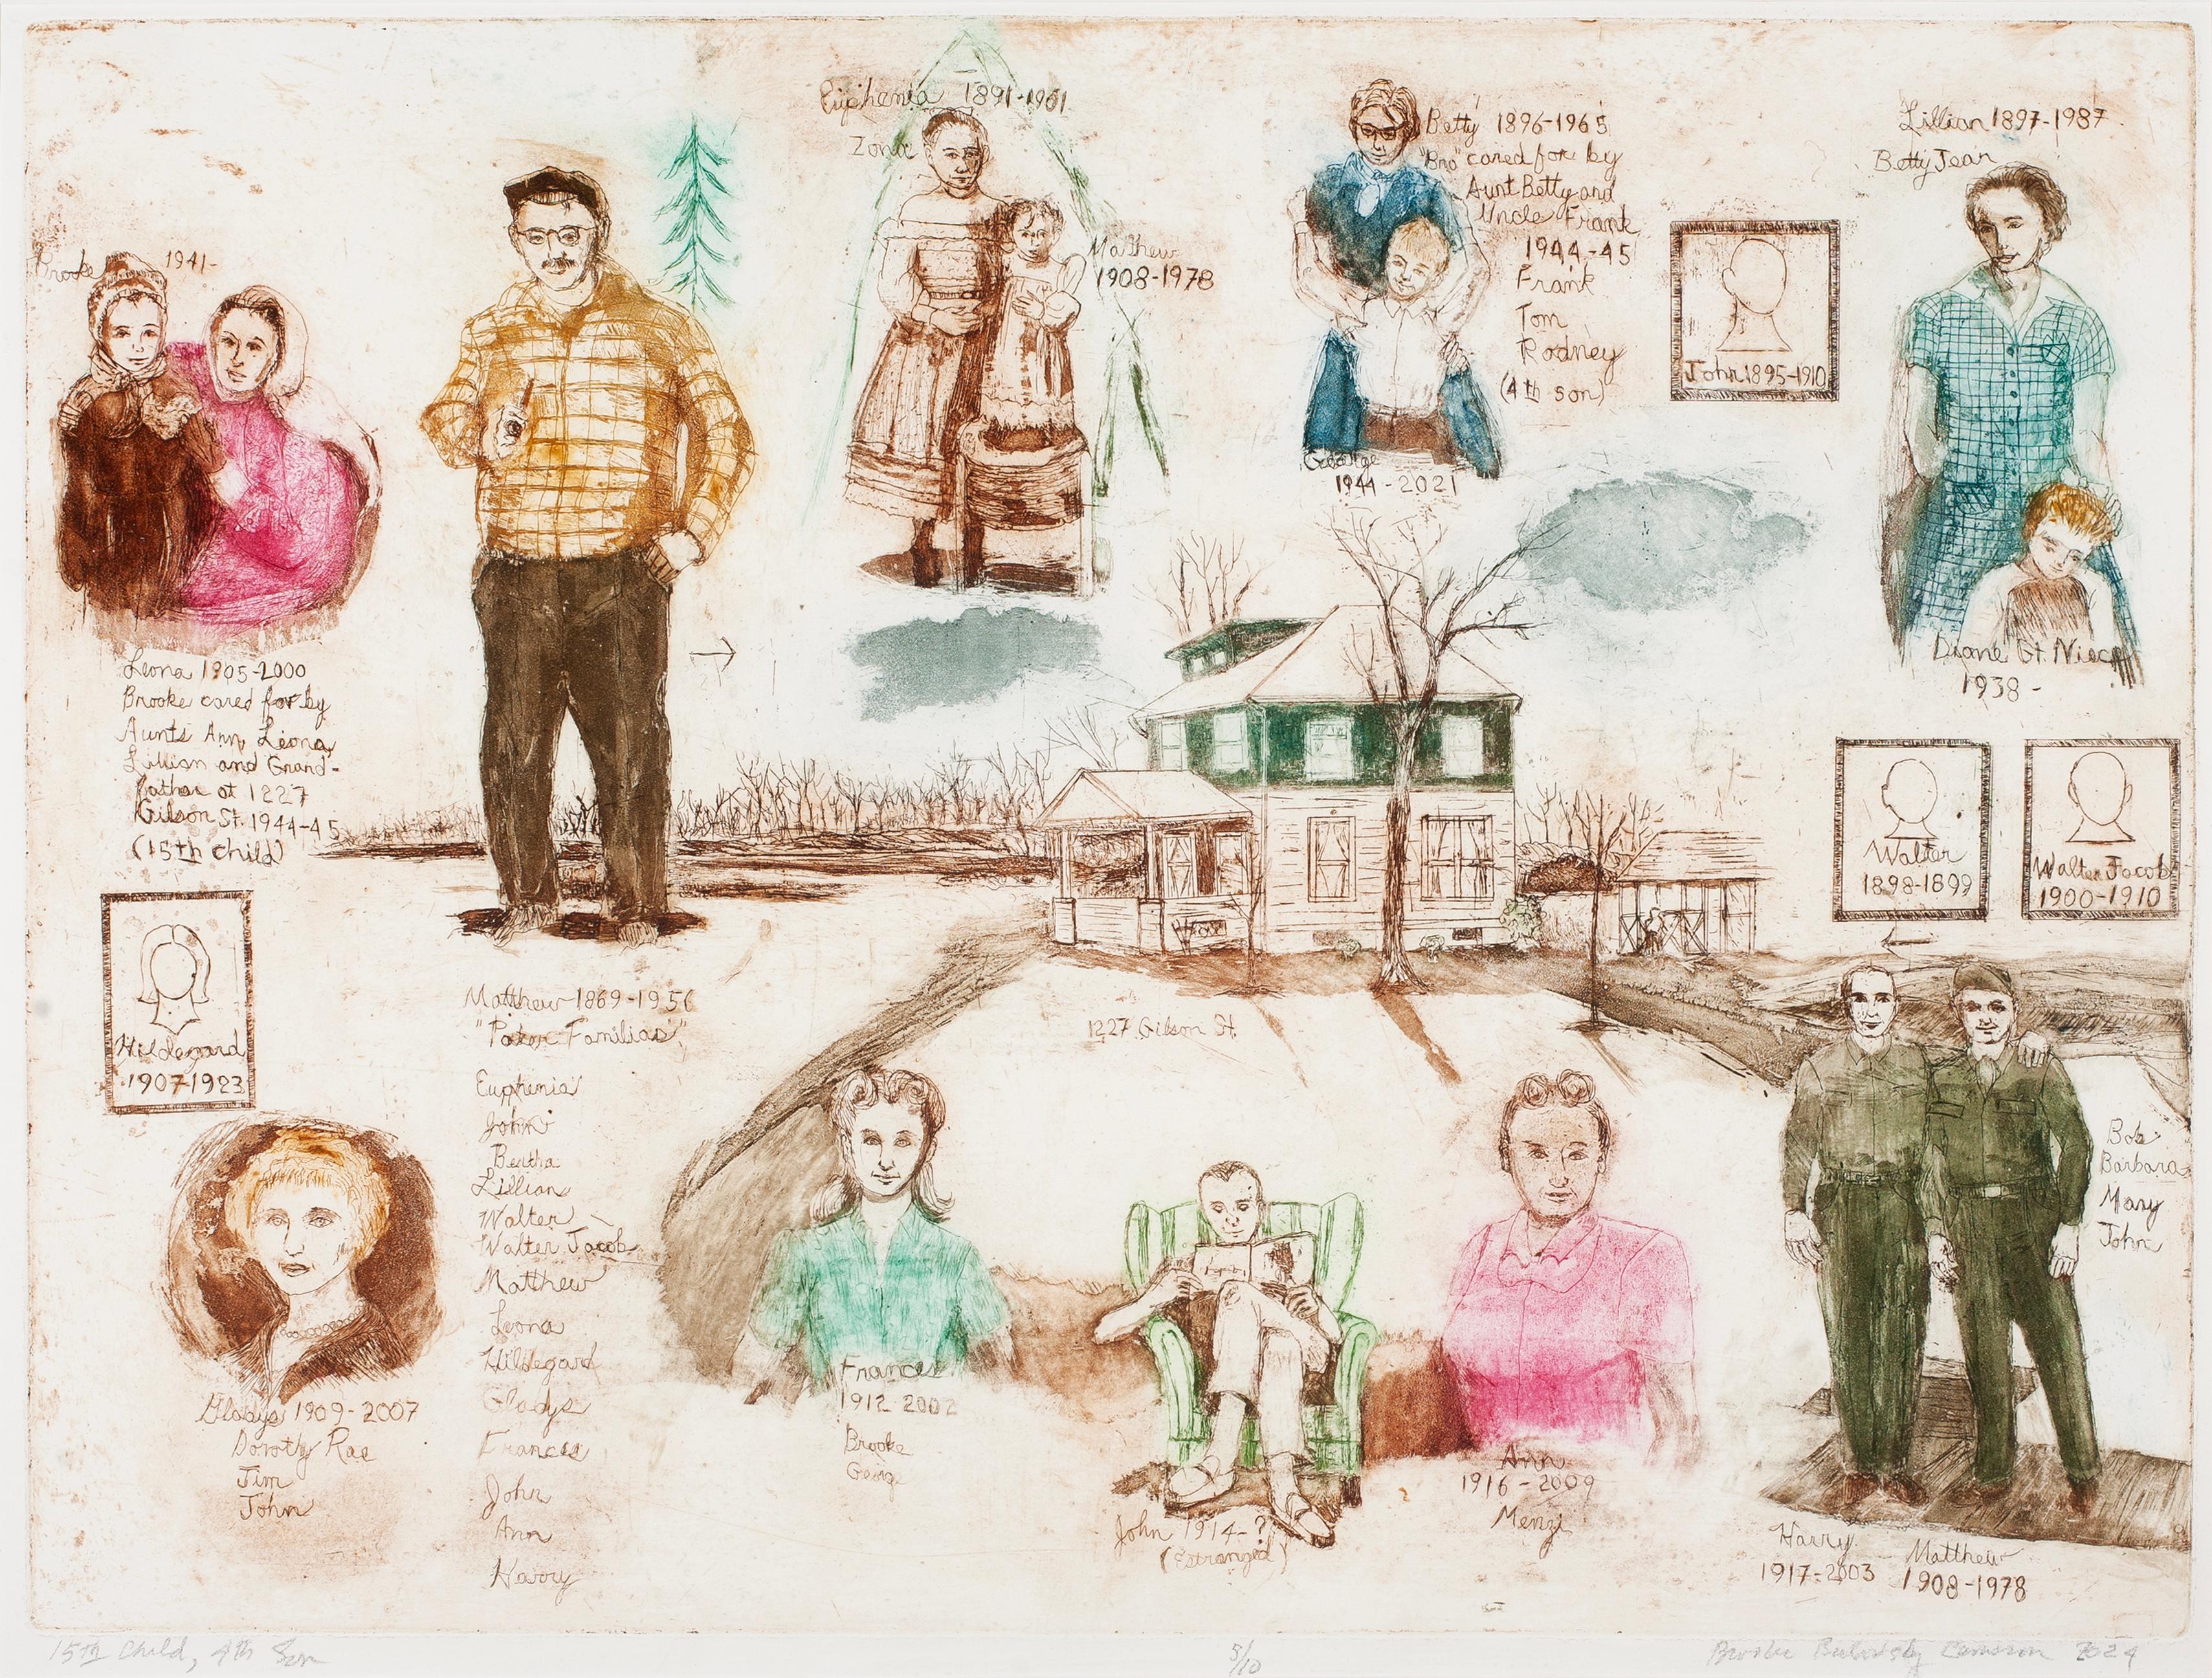 Euphenia 1891-1961
Zona
Mathew
1908-1978
Betty 1896-1965
"Bro" cared for by
Aunt Betty and
Uncle Frank
1944-45
Frank
Tom
Rodney
(4th son)
George
1944-2021
Lillian 1897-1987
Betty Jean
John 1895-1910
Diane Gt. Niece
1938-
Brooke 1941-
Leona 1905-2000
Brooke cared for by
Aunts Ann, Leona,
Lillian and Grand-
father at 1227
Gilson St. 1944-45
(15th child)
Walter
1898-1899
Walter Jacob
1900-1910
Hildegard
1907-1923
Matthew 1869-1956
"Pater Familias"
Euphenia
John
Bertha
Lillian
Walter
Walter Jacob
Matthew
Leona
Hildegard
Gladys
Frances
John
Ann
Harry
1227 Gilson St.
Gladys 1909-2007
Dorothy Rae
Jim
John
Frances
1912-2002
Brooke
George
John 1914-?
(Estranged)
Ann
1916-2009
Menzi
Bob
Barbara
Mary
John
Harry
1917-2003
Matthew
1908-1978
15th Child, 4th Son
5/10
Brooke Bulovsky Cameron 2024